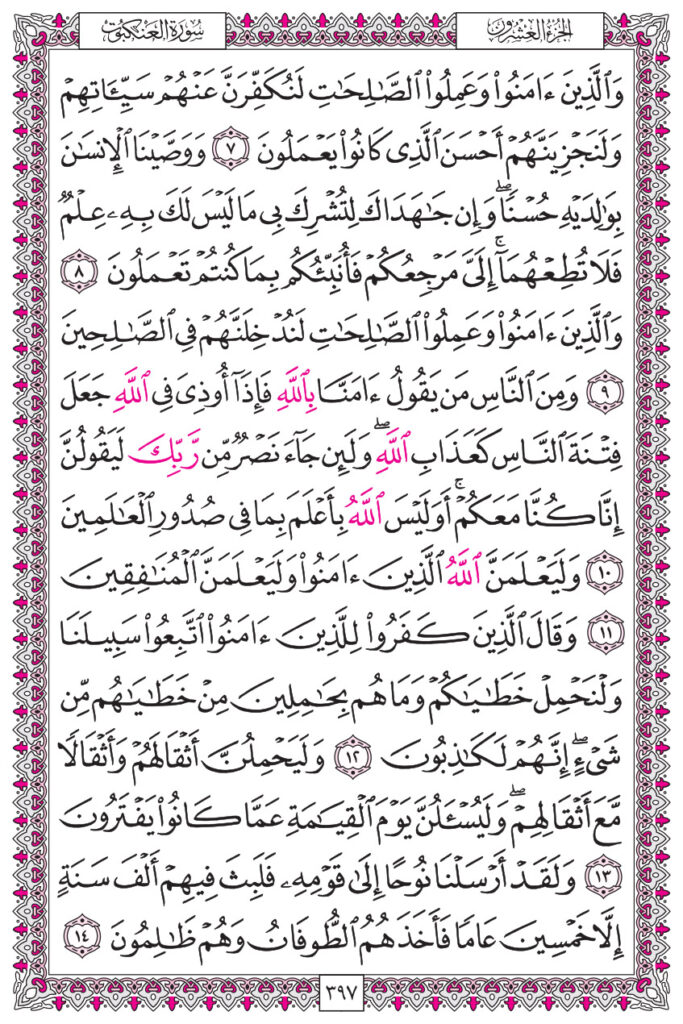 الجزء العشرون
سورة العنكبوت
وَٱلَّذِينَ ءَامَنُوا۟ وَعَمِلُوا۟ ٱلصَّٰلِحَٰتِ لَنُكَفِّرَنَّ عَنْهُمْ سَيِّـَٔاتِهِمْ
وَلَنَجْزِيَنَّهُمْ أَحْسَنَ ٱلَّذِى كَانُوا۟ يَعْمَلُونَ ٧ وَوَصَّيْنَا ٱلْإِنسَٰنَ
بِوَٰلِدَيْهِ حُسْنًا ۖ وَإِن جَٰهَدَاكَ لِتُشْرِكَ بِى مَا لَيْسَ لَكَ بِهِۦ عِلْمٌ
فَلَا تُطِعْهُمَآ ۚ إِلَىَّ مَرْجِعُكُمْ فَأُنَبِّئُكُم بِمَا كُنتُمْ تَعْمَلُونَ ٨
وَٱلَّذِينَ ءَامَنُوا۟ وَعَمِلُوا۟ ٱلصَّٰلِحَٰتِ لَنُدْخِلَنَّهُمْ فِى ٱلصَّٰلِحِينَ
٩ وَمِنَ ٱلنَّاسِ مَن يَقُولُ ءَامَنَّا بِٱللَّهِ فَإِذَآ أُوذِىَ فِى ٱللَّهِ جَعَلَ
فِتْنَةَ ٱلنَّاسِ كَعَذَابِ ٱللَّهِ ۖ وَلَئِن جَآءَ نَصْرٌ مِّن رَّبِّكَ لَيَقُولُنَّ
إِنَّا كُنَّا مَعَكُمْ ۚ أَوَلَيْسَ ٱللَّهُ بِأَعْلَمَ بِمَا فِى صُدُورِ ٱلْعَٰلَمِينَ
١٠ وَلَيَعْلَمَنَّ ٱللَّهُ ٱلَّذِينَ ءَامَنُوا۟ وَلَيَعْلَمَنَّ ٱلْمُنَٰفِقِينَ
١١ وَقَالَ ٱلَّذِينَ كَفَرُوا۟ لِلَّذِينَ ءَامَنُوا۟ ٱتَّبِعُوا۟ سَبِيلَنَا
وَلْنَحْمِلْ خَطَٰيَٰكُمْ وَمَا هُم بِحَٰمِلِينَ مِنْ خَطَٰيَٰهُم مِّن
شَىْءٍ ۖ إِنَّهُمْ لَكَٰذِبُونَ ١٢ وَلَيَحْمِلُنَّ أَثْقَالَهُمْ وَأَثْقَالًا
مَّعَ أَثْقَالِهِمْ ۖ وَلَيُسْـَٔلُنَّ يَوْمَ ٱلْقِيَٰمَةِ عَمَّا كَانُوا۟ يَفْتَرُونَ
١٣ وَلَقَدْ أَرْسَلْنَا نُوحًا إِلَىٰ قَوْمِهِۦ فَلَبِثَ فِيهِمْ أَلْفَ سَنَةٍ
إِلَّا خَمْسِينَ عَامًا فَأَخَذَهُمُ ٱلطُّوفَانُ وَهُمْ ظَٰلِمُونَ ١٤
٣٩٧